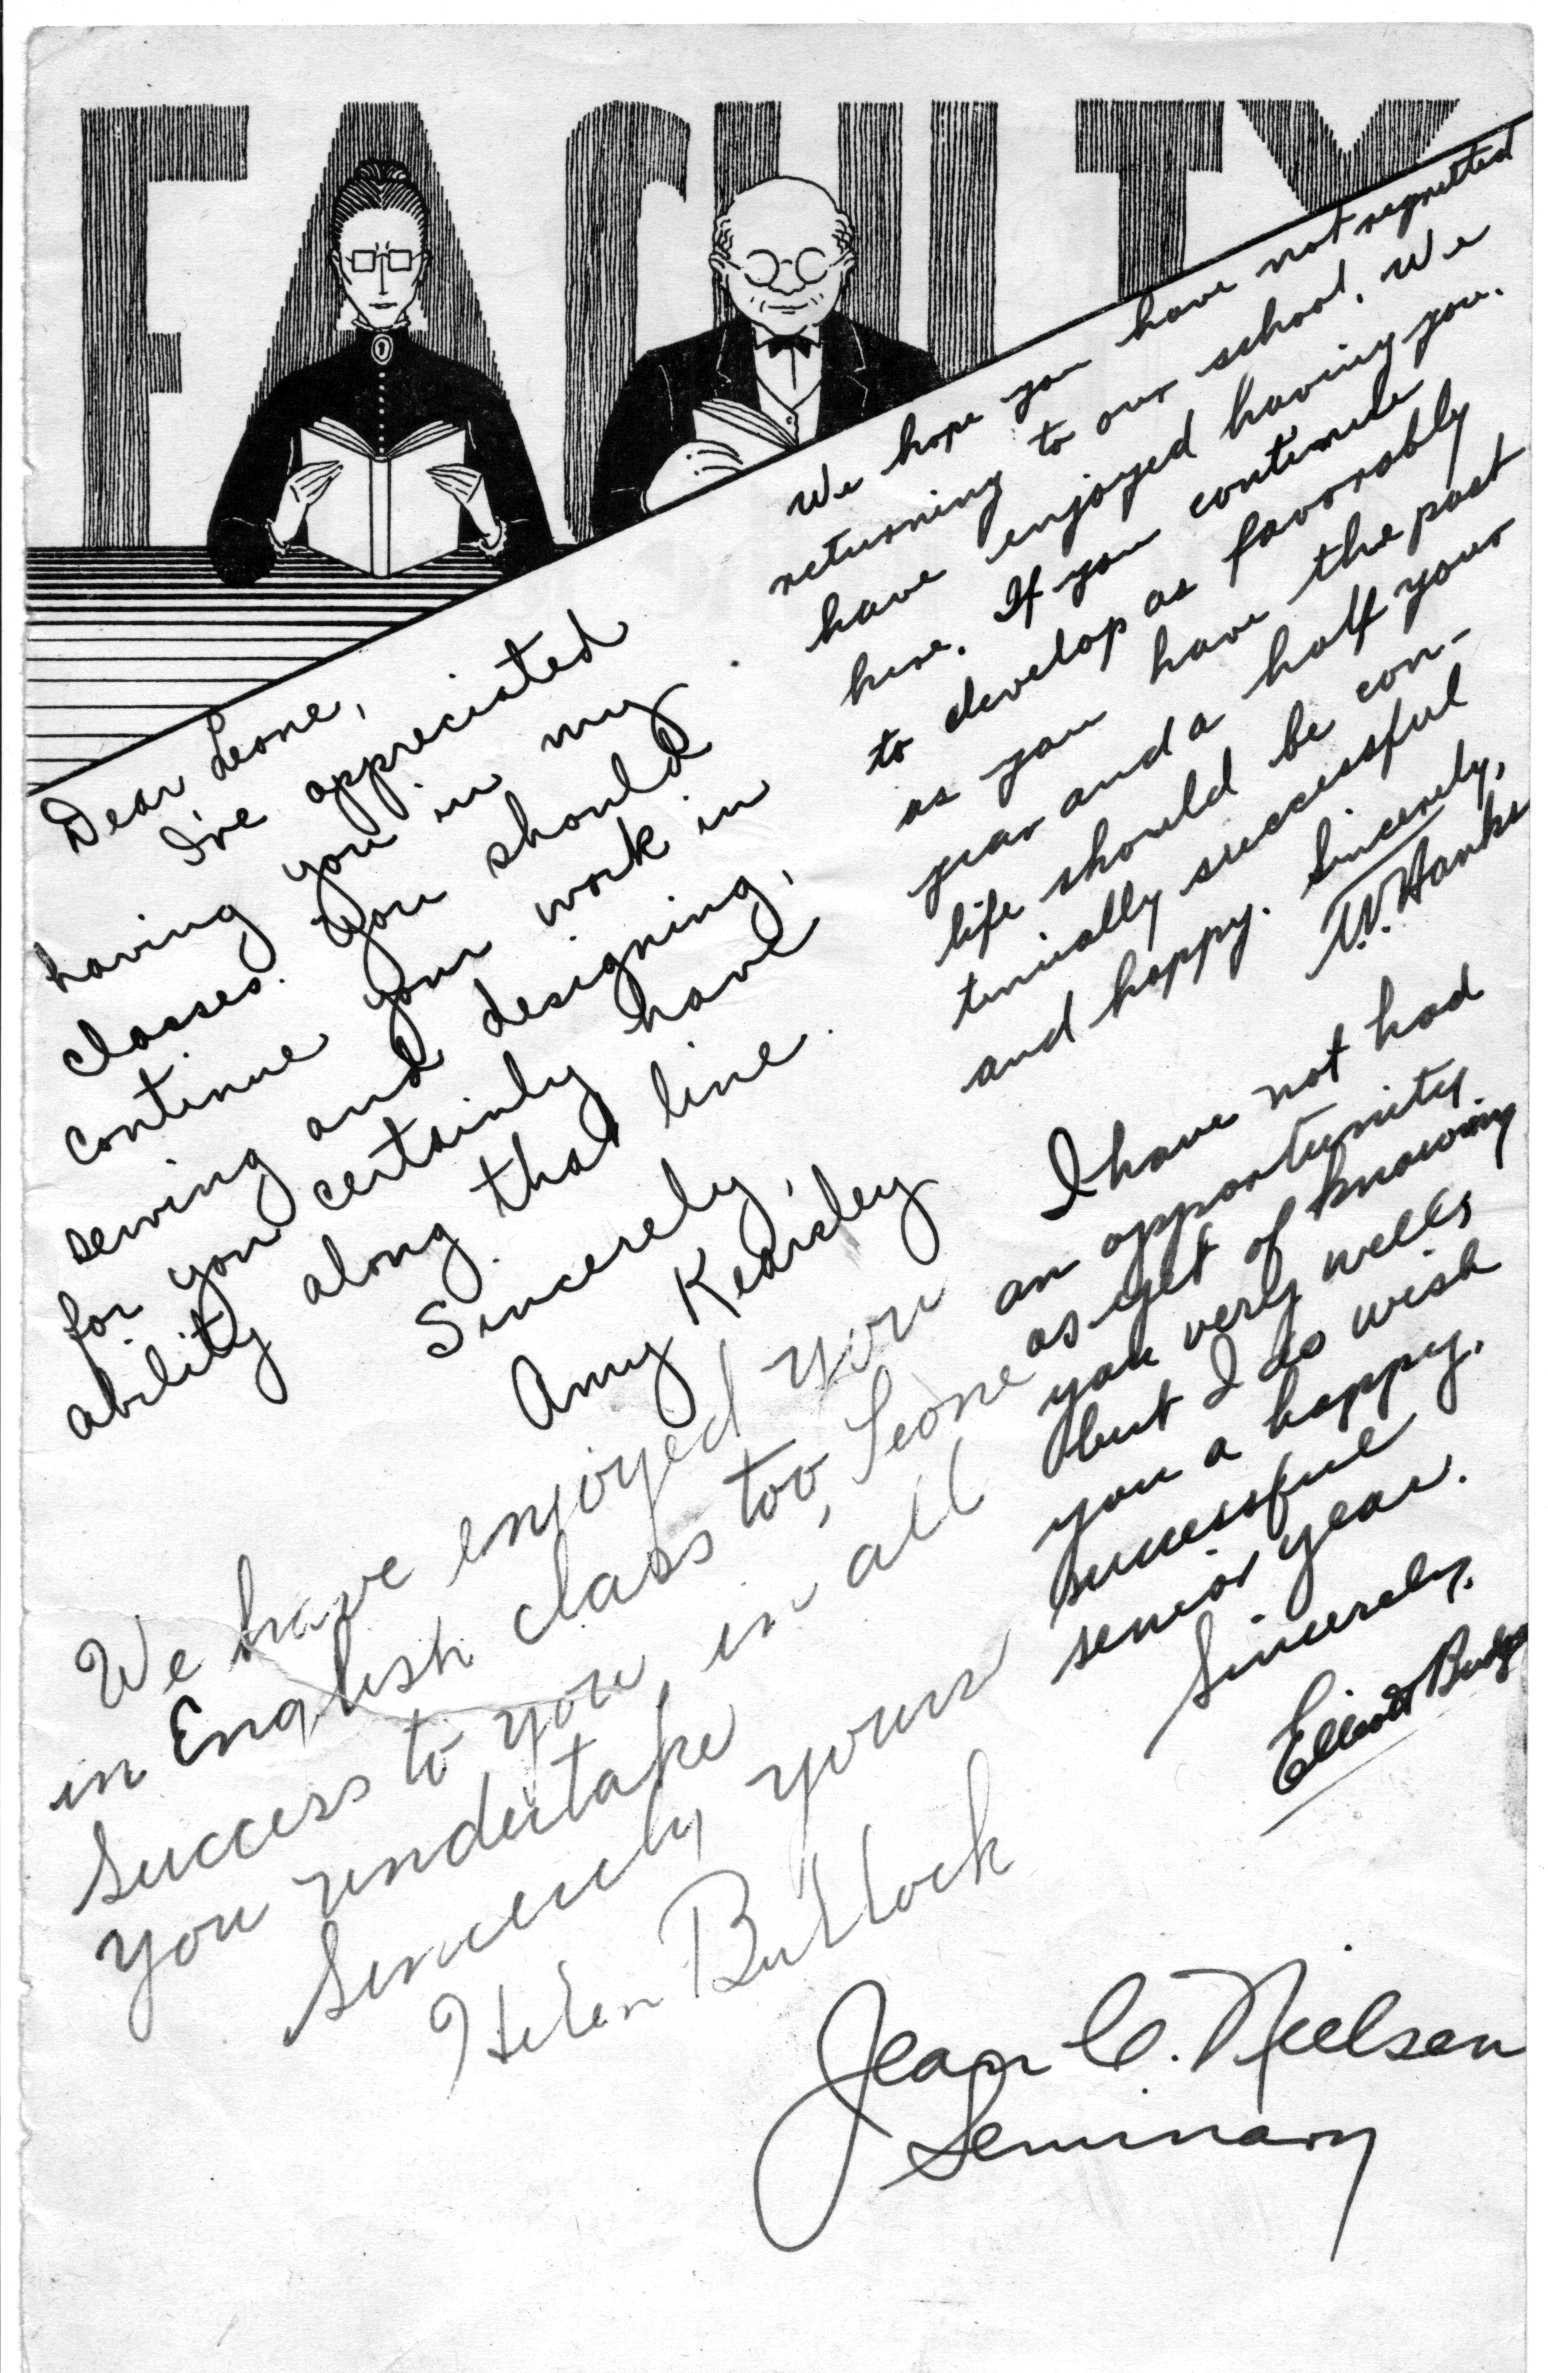 FACULTY
Dear Leone,
I've appreciated
having you in my
classes. You should
continue your work in
sewing and designing,
for you certainly have
ability along that line.
Sincerely,
Amy Kearsley
We hope you have not regretted
returning to our school. We
have enjoyed having you
here. If you continue
to develop as favorably
as you have the past
year and a half your
life should be con-
tinually successful
and happy. Sincerely,
T.V. Hanks
I have not had
an opportunity
as yet of knowing
you very well
but I do wish
you a happy,
successful
senior year.
Sincerely,
Elliott Budge
We have enjoyed you
in English class too, Leone
Success to you in all
you undertake
Sincerely yours
Helen Bullock
Jean C. Nielsen
Seminary